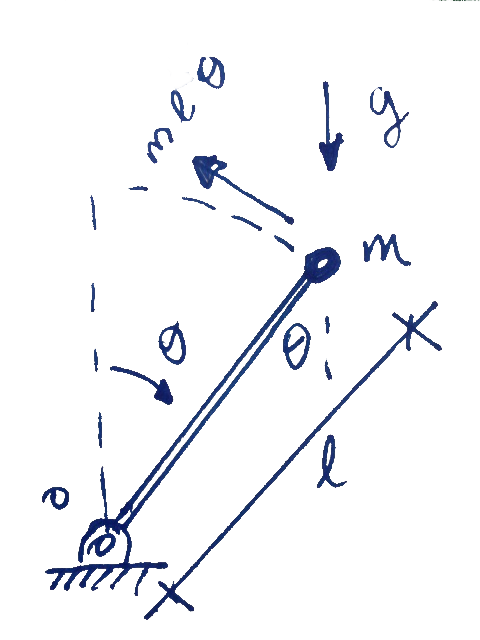 m l θ
g
m
θ
θ
l
o